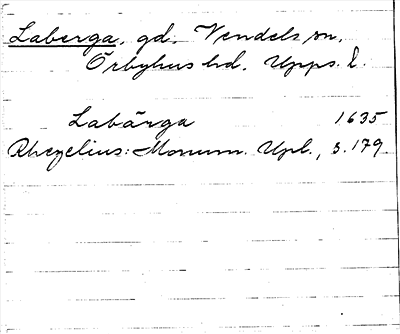 Laberga, gd, Vendels sn,
Örbyhus hd, Upps. l.
Labärga 1635
Rhezelius: Monum. Upl., s. 179